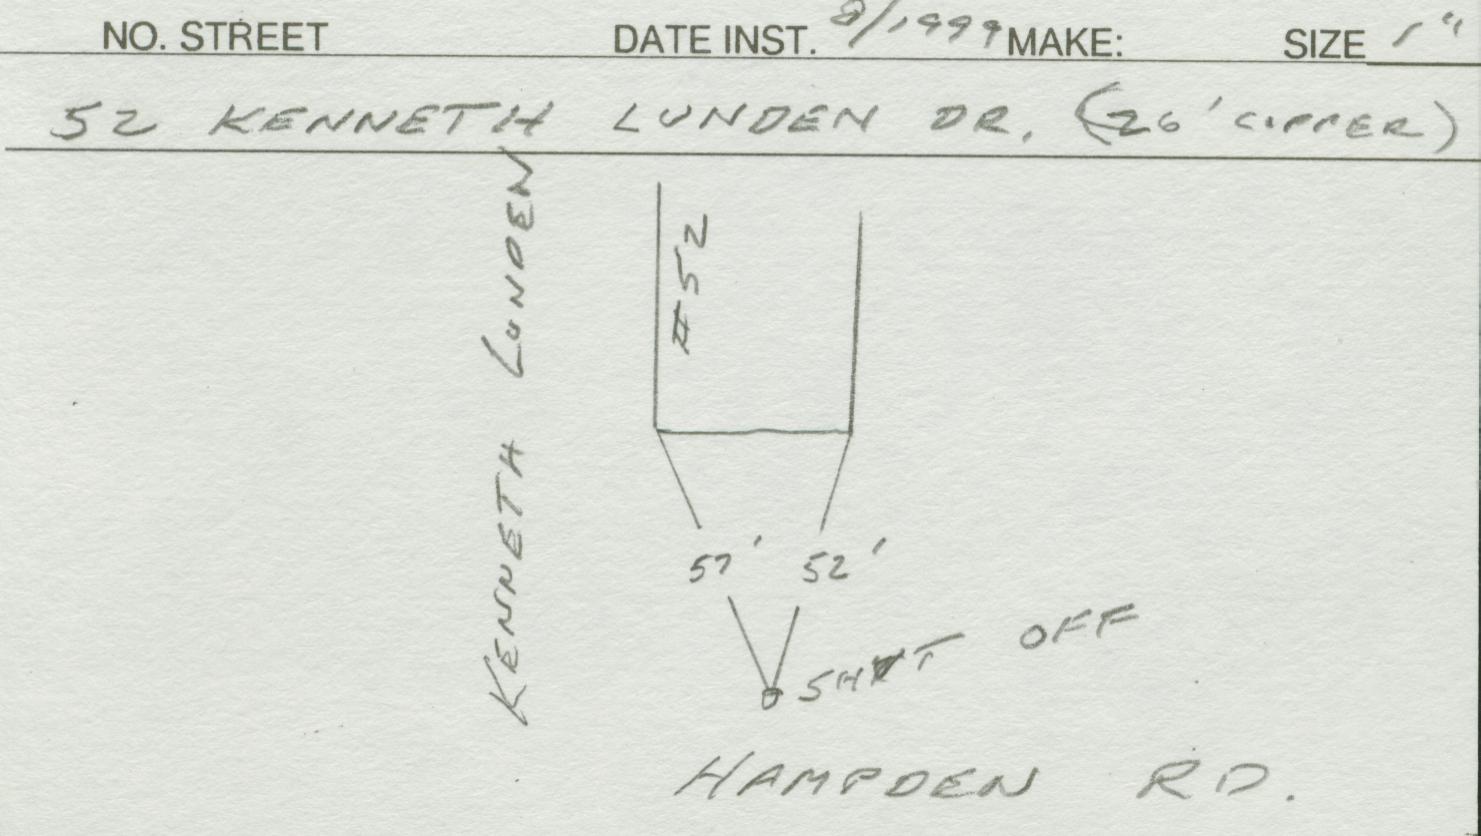 NO. STREET DATE INST. 8/1999 MAKE: SIZE 1"
52 KENNETH LUNDEN DR. (26' COPPER)
KENNETH LUNDEN
#52
57' 52'
SHUT OFF
HAMPDEN RD.